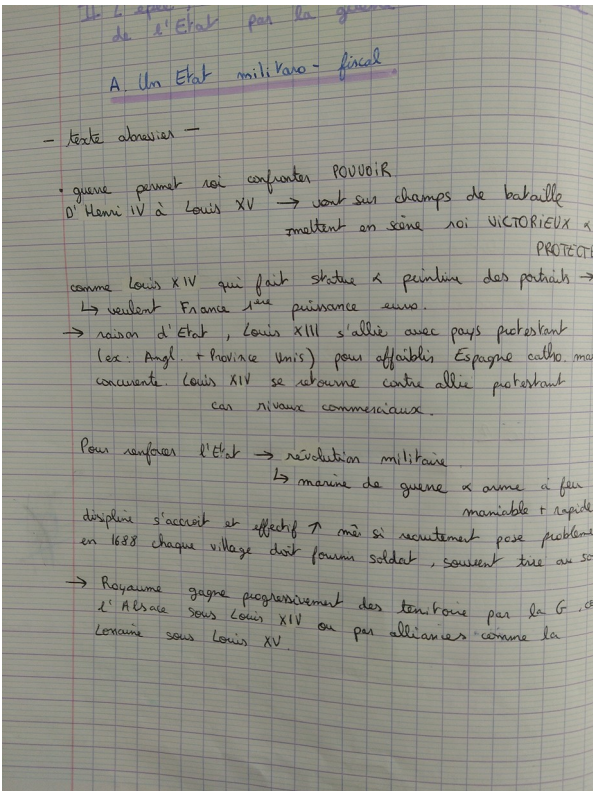 de l'Etat par la guerre
A. Un Etat militaro - fiscal
- texte abrevier -
• guerre permet roi confronter POUVOIR
D'Henri IV à Louis XV → vont sur champs de bataille
mettent en scène roi VICTORIEUX &
PROTECTE
comme Louis XIV qui fait statue & peinture des portraits →
↳ veulent France 1ère puissance euro.
→ raison d'Etat, Louis XIII s'allie avec pays protestant
(ex: Angl. + Province Unis) pour affaiblir Espagne catho. mai
concurente. Louis XIV se retourne contre allie protestant
car rivaux commerciaux.
Pour renforcer l'Etat → révolution militaire
↳ marine de guerre & arme à feu
maniable + rapide
displine s'accroit et effectif ↑ mês si recrutement pose problème
en 1688 chaque village doit fournir soldat, souvent tire au so
→ Royaume gagne progressivement des teritoire par la G. co
l'Alsace sous Louis XIV ou par alliances comme la
Lorraine sous Louis XV.